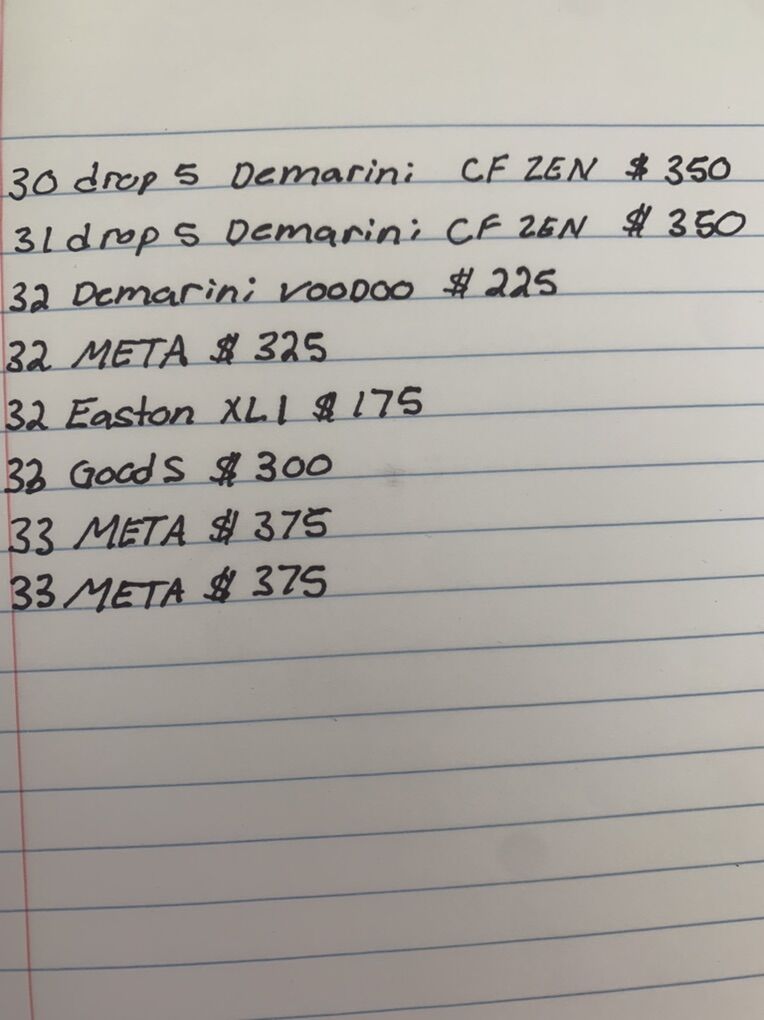 30 drop 5 Demarini CF ZEN $350
31 drop 5 Demarini CF ZEN $350
32 Demarini VOODOO $225
32 META $325
32 Easton XL1 $175
33 Goods $300
33 META $375
33 META $375